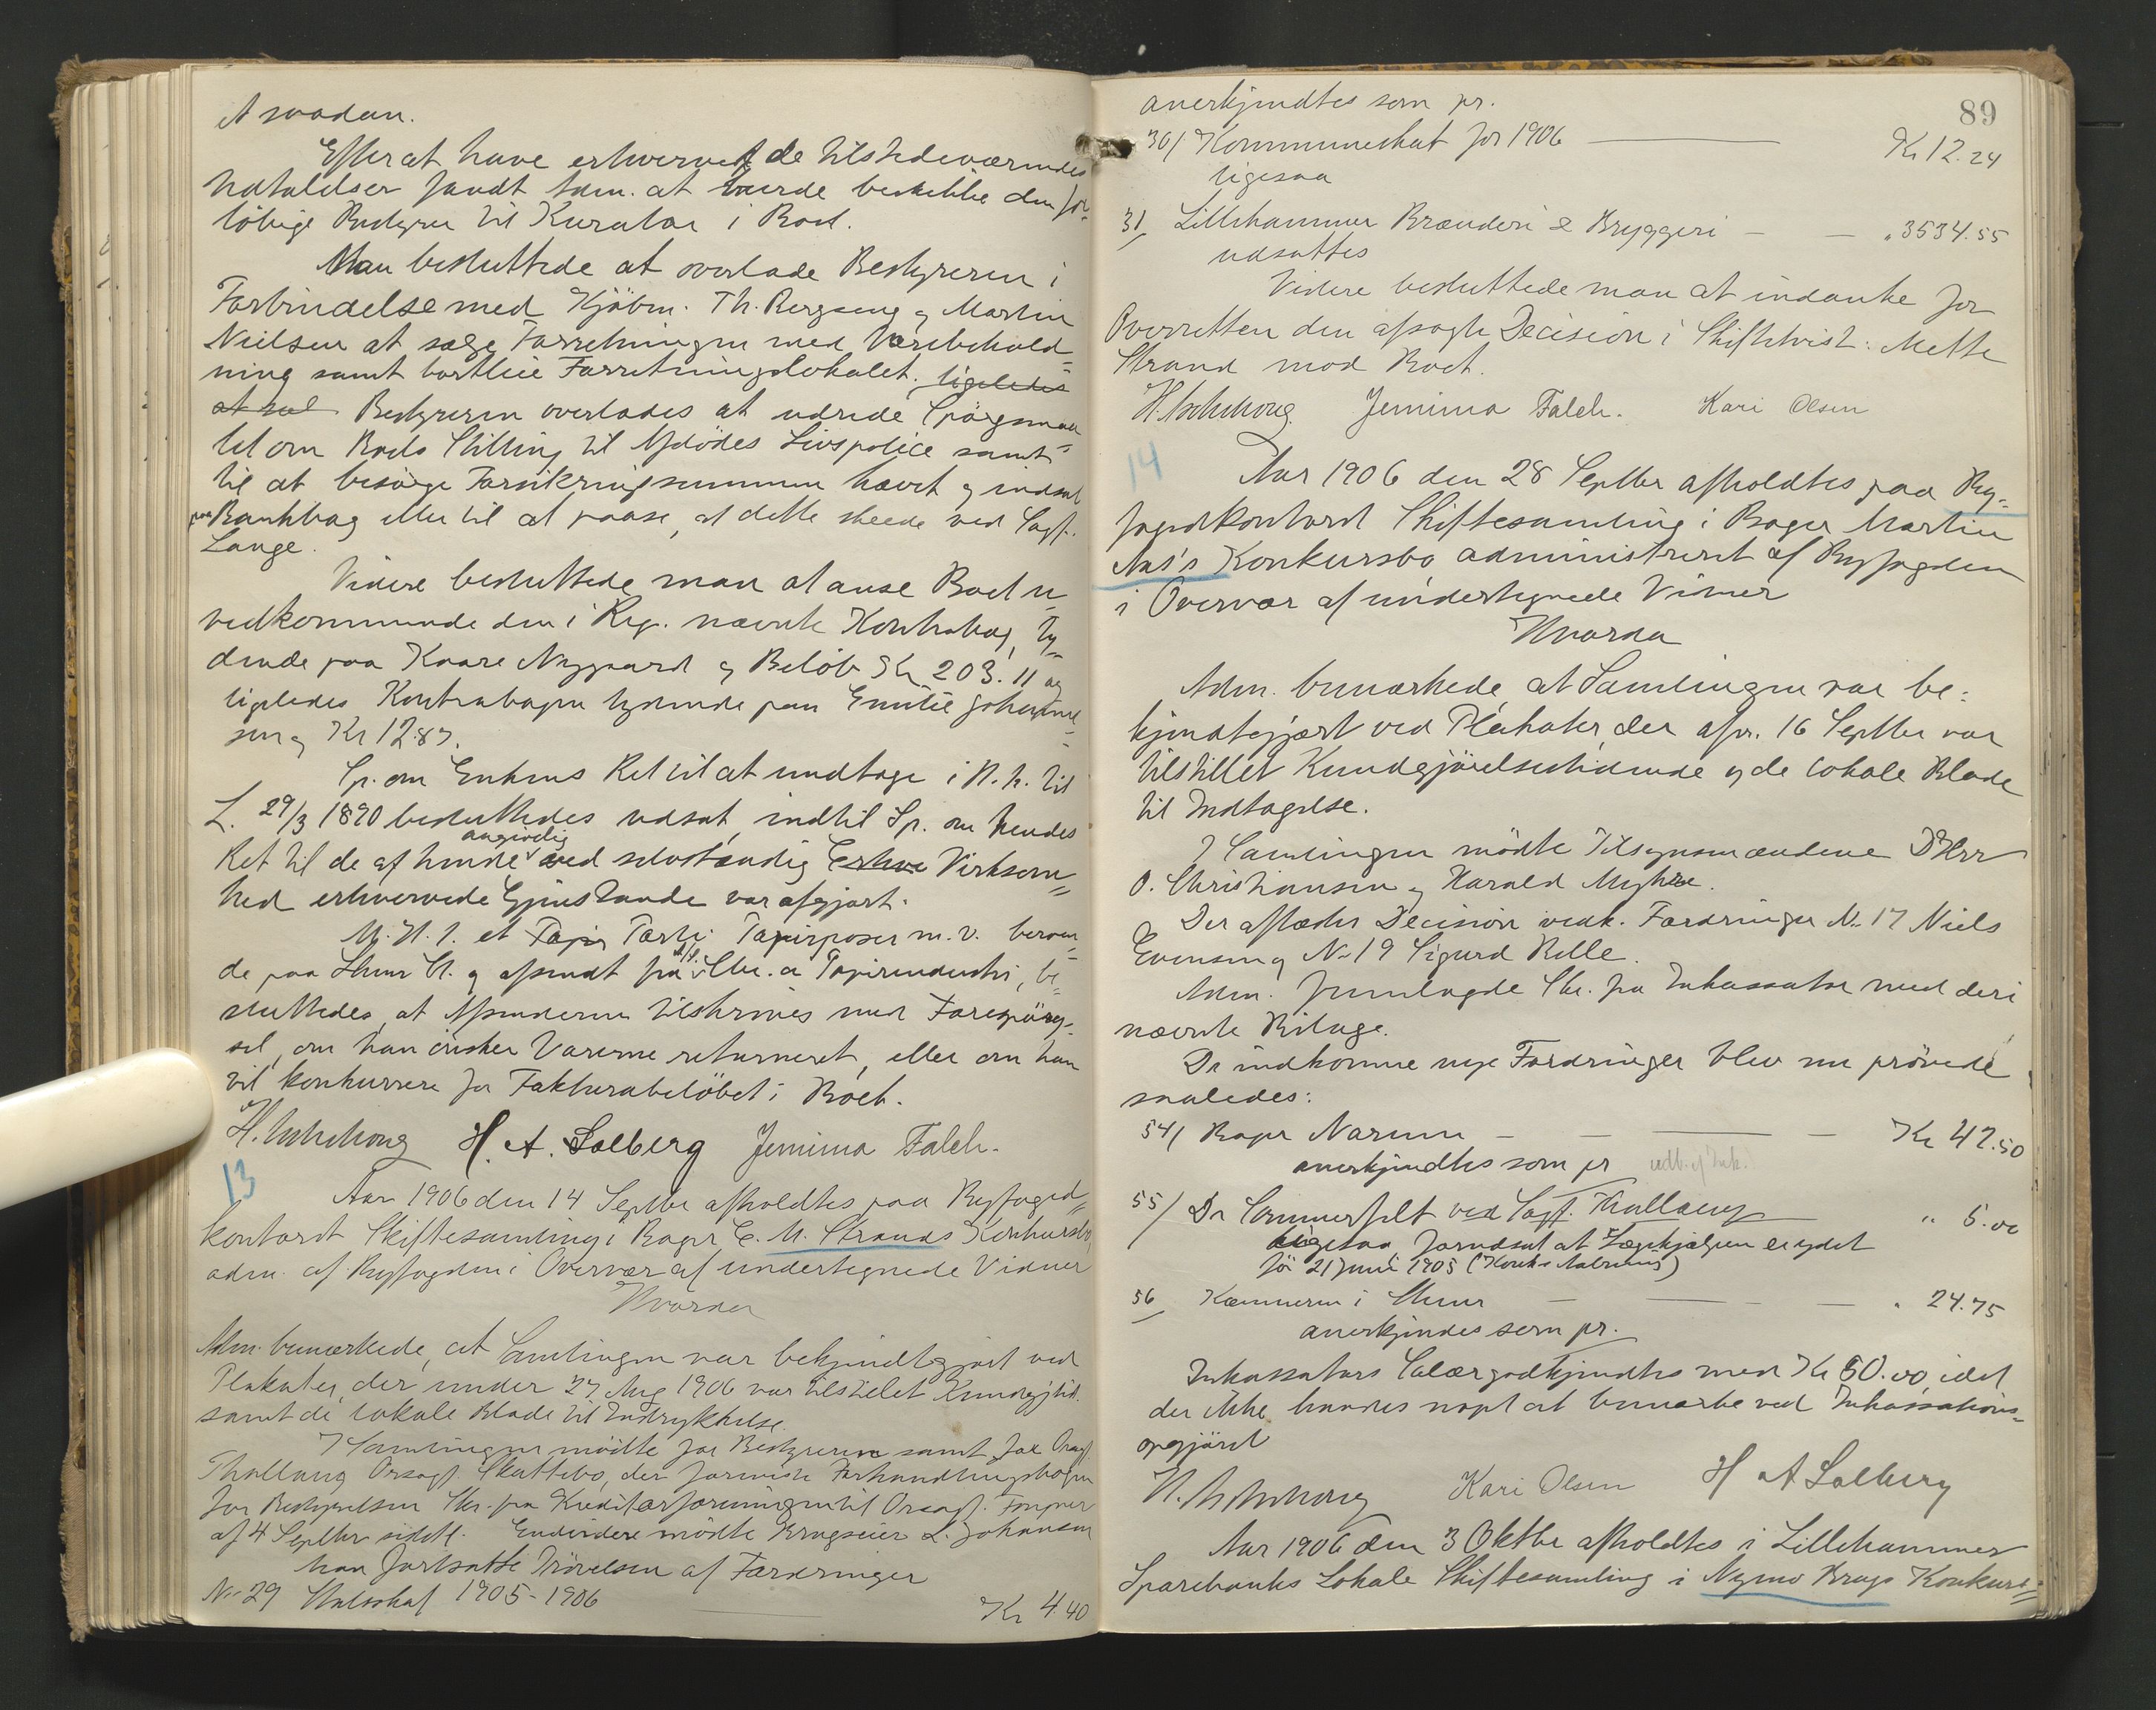 et saadan.
Efter at have erhvervet de tilstedeværendes
Udtalelser fandt Adm. at burde beskikke den fore-
løbige Bestyrer til Kurator i Boet.
Man besluttede at overlade Bestyreren i
Forbindelse med Kjøbm. Th. Bergseng og Martin
Nielsen at sælge Forretningen med Varebehold-
ning samt bortleie Forretningslokalet. ligeledes
at Bestyreren overlades at udrede Spørgsmaa-
let om Boets Stilling til Afdødes Livspolice samt
til at besørge Forsikringssummen hævet og indsat
paa Bankbog eller til at paase, at dette skeede ved Sagf.
Lange.
Videre besluttede man at anse Boet u-
vedkommende den i Reg. nævnte Kontrabog, ly-
dende paa Kaare Nygaard og Beløb Kr 203.11 og
ligeledes Kontrabogen lydende paa Emilie Johanne-
sen og Kr 12.87.
Sp. om Enkens Ret til at undtage i H. h. til
L. 29/3 1890 besluttedes udsat, indtil Sp. om hendes
Ret til de af hende angivelig ved selvstændig Erhve Virksom-
hed erhvervede Gjenstande var afgjort.
M. H. t. et Papir Parti Papirposer m. v. beroen-
de paa Hmr St. og afsendt fra Papirindustri, be-
sluttedes, at Afsenderen tilskrives med Forespørg-
sel, om han ønsker Varerne returneret, eller om han
vil konkurrere for Fakturabeløbet i Boet.
H. A. Solberg Jemima Falch.
13
Aar 1906 den 14 Septbr afholdtes paa Byfoged-
kontoret Skiftesamling i Bager E. M. Strands Konkursbo,
adm. af Byfogden i Overvær af undertegnede Vidner
Hvorda
Adm. bemærkede, at Samlingen var bekjendtgjort ved
Plakater, der under 27 Aug 1906 var tilstillet Kundgjtid.
samt de lokale Blade til Indrykkelse.
I Samlingen mødte for Bestyreren samt for Orsagf.
Thallaug Orsagf. Skattebo, der foreviste Forhandlingsbogen
for Bestyrelsen Skr. fra Kreditorforeningen til Orsagf.
af 4 Septbr sidstl. Endvidere mødte Brugseier L. Johansen
Man fortsatte Prøvelsen af Fordringer
No 29 Statsskat 1905-1906 Kr 4.40
89
anerkjendtes som pr.
30/ Kommuneskat for 1906 Kr 12.24
ligesaa
31/ Lillehammer Brænderi & Bryggeri " 3534.55
udsattes
Videre besluttede man at indanke for
Overretten den afsagte Decision i Skiftetvist: Mette
Strand mod Boet.
Jemima Falch. Kari Olsen
14
Aar 1906 den 28 Septbr afholdtes paa By-
fogedkontoret Skiftesamling i Bager Martin
Aas's Konkursbo, administreret af Byfogden
i Overvær af undertegnede Vidner
Hvorda
Adm. bemærkede at Samlingen var be-
kjendtgjort ved Plakater, der afvr. 16 Septbr var
tilstillet Kundgjørelsestidende og de lokale Blade
til Indtagelse.
I Samlingen mødte Tilsynsmændene D'Hrr
O. Christiansen og Harald Myhre.
Der aflædes Decision vedk. Fordringer No 17 Niels
Evensen og No 19 Sigurd Kolle.
Adm. fremlagde Skr. fra Inkassator med deri
nævnte Bilage.
De indkomne nye Fordringer blev nu prøvede
saaledes:
54/ Bager Narum Kr 42.50
anerkjendtes som pr
55/ Dr Sommerfelt ved Sagf. Thallaug " 5.00
ligesaa forudsat at Lægehjælpen er ydet
før 21 Juni 1905 (Konks Aabning)
56/ Kæmneren i Hmr " 24.75
anerkjendes som pr.
Inkassators Salær godkjendtes med Kr 50.00, idet
der ikke fandtes noget at bemærke ved Inkassations-
opgjøret
Kari Olsen H A Solberg
Aar 1906 den 3 Oktbr afholdtes i Lillehammer
Sparebanks Lokale Skiftesamling i Nymo Brugs Konkurs-